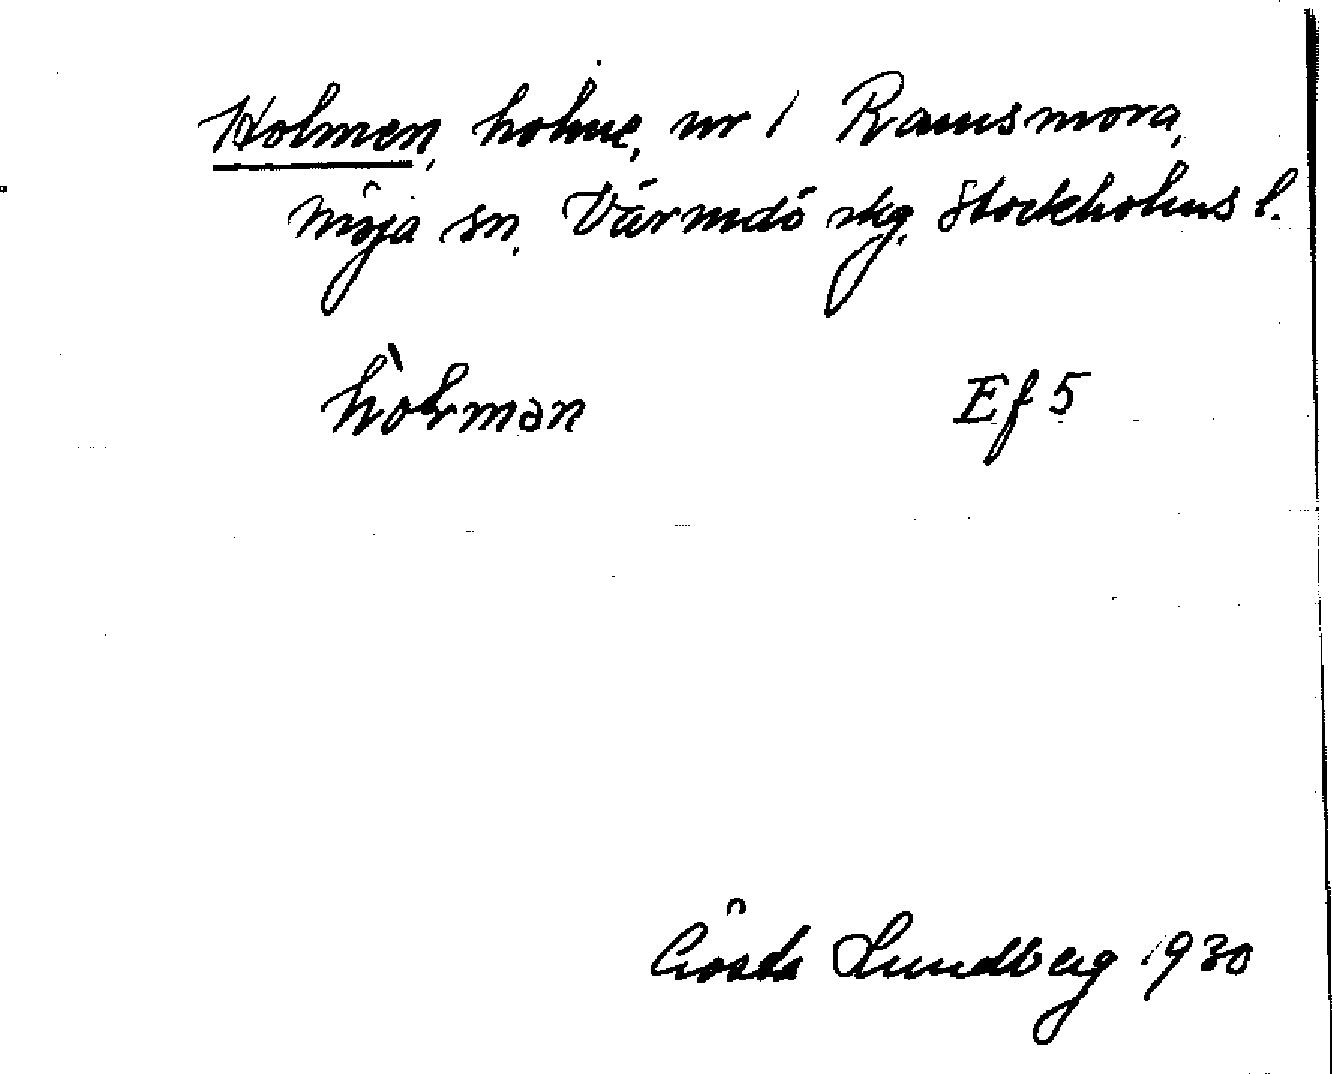 Holmen, holme, nr 1 Ramsmora,
Möja sn, Värmdö skg, Stockholms l.
hòlmən Ef 5
Gösta Lundberg 1930